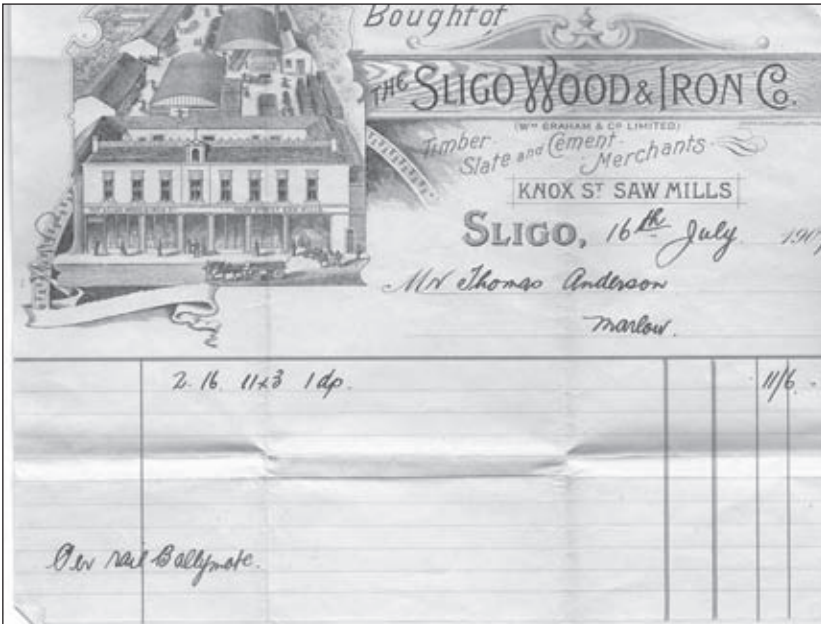 Bought of
THE SLIGO WOOD & IRON Co.
(Wm GRAHAM & Co LIMITED)
Timber
Slate and Cement
Merchants
KNOX ST SAW MILLS
SLIGO, 16th July 190
Mr Thomas Anderson
Marlow.
2. 16 11x3 1 dp. 11/6 -
Per rail Ballymote.